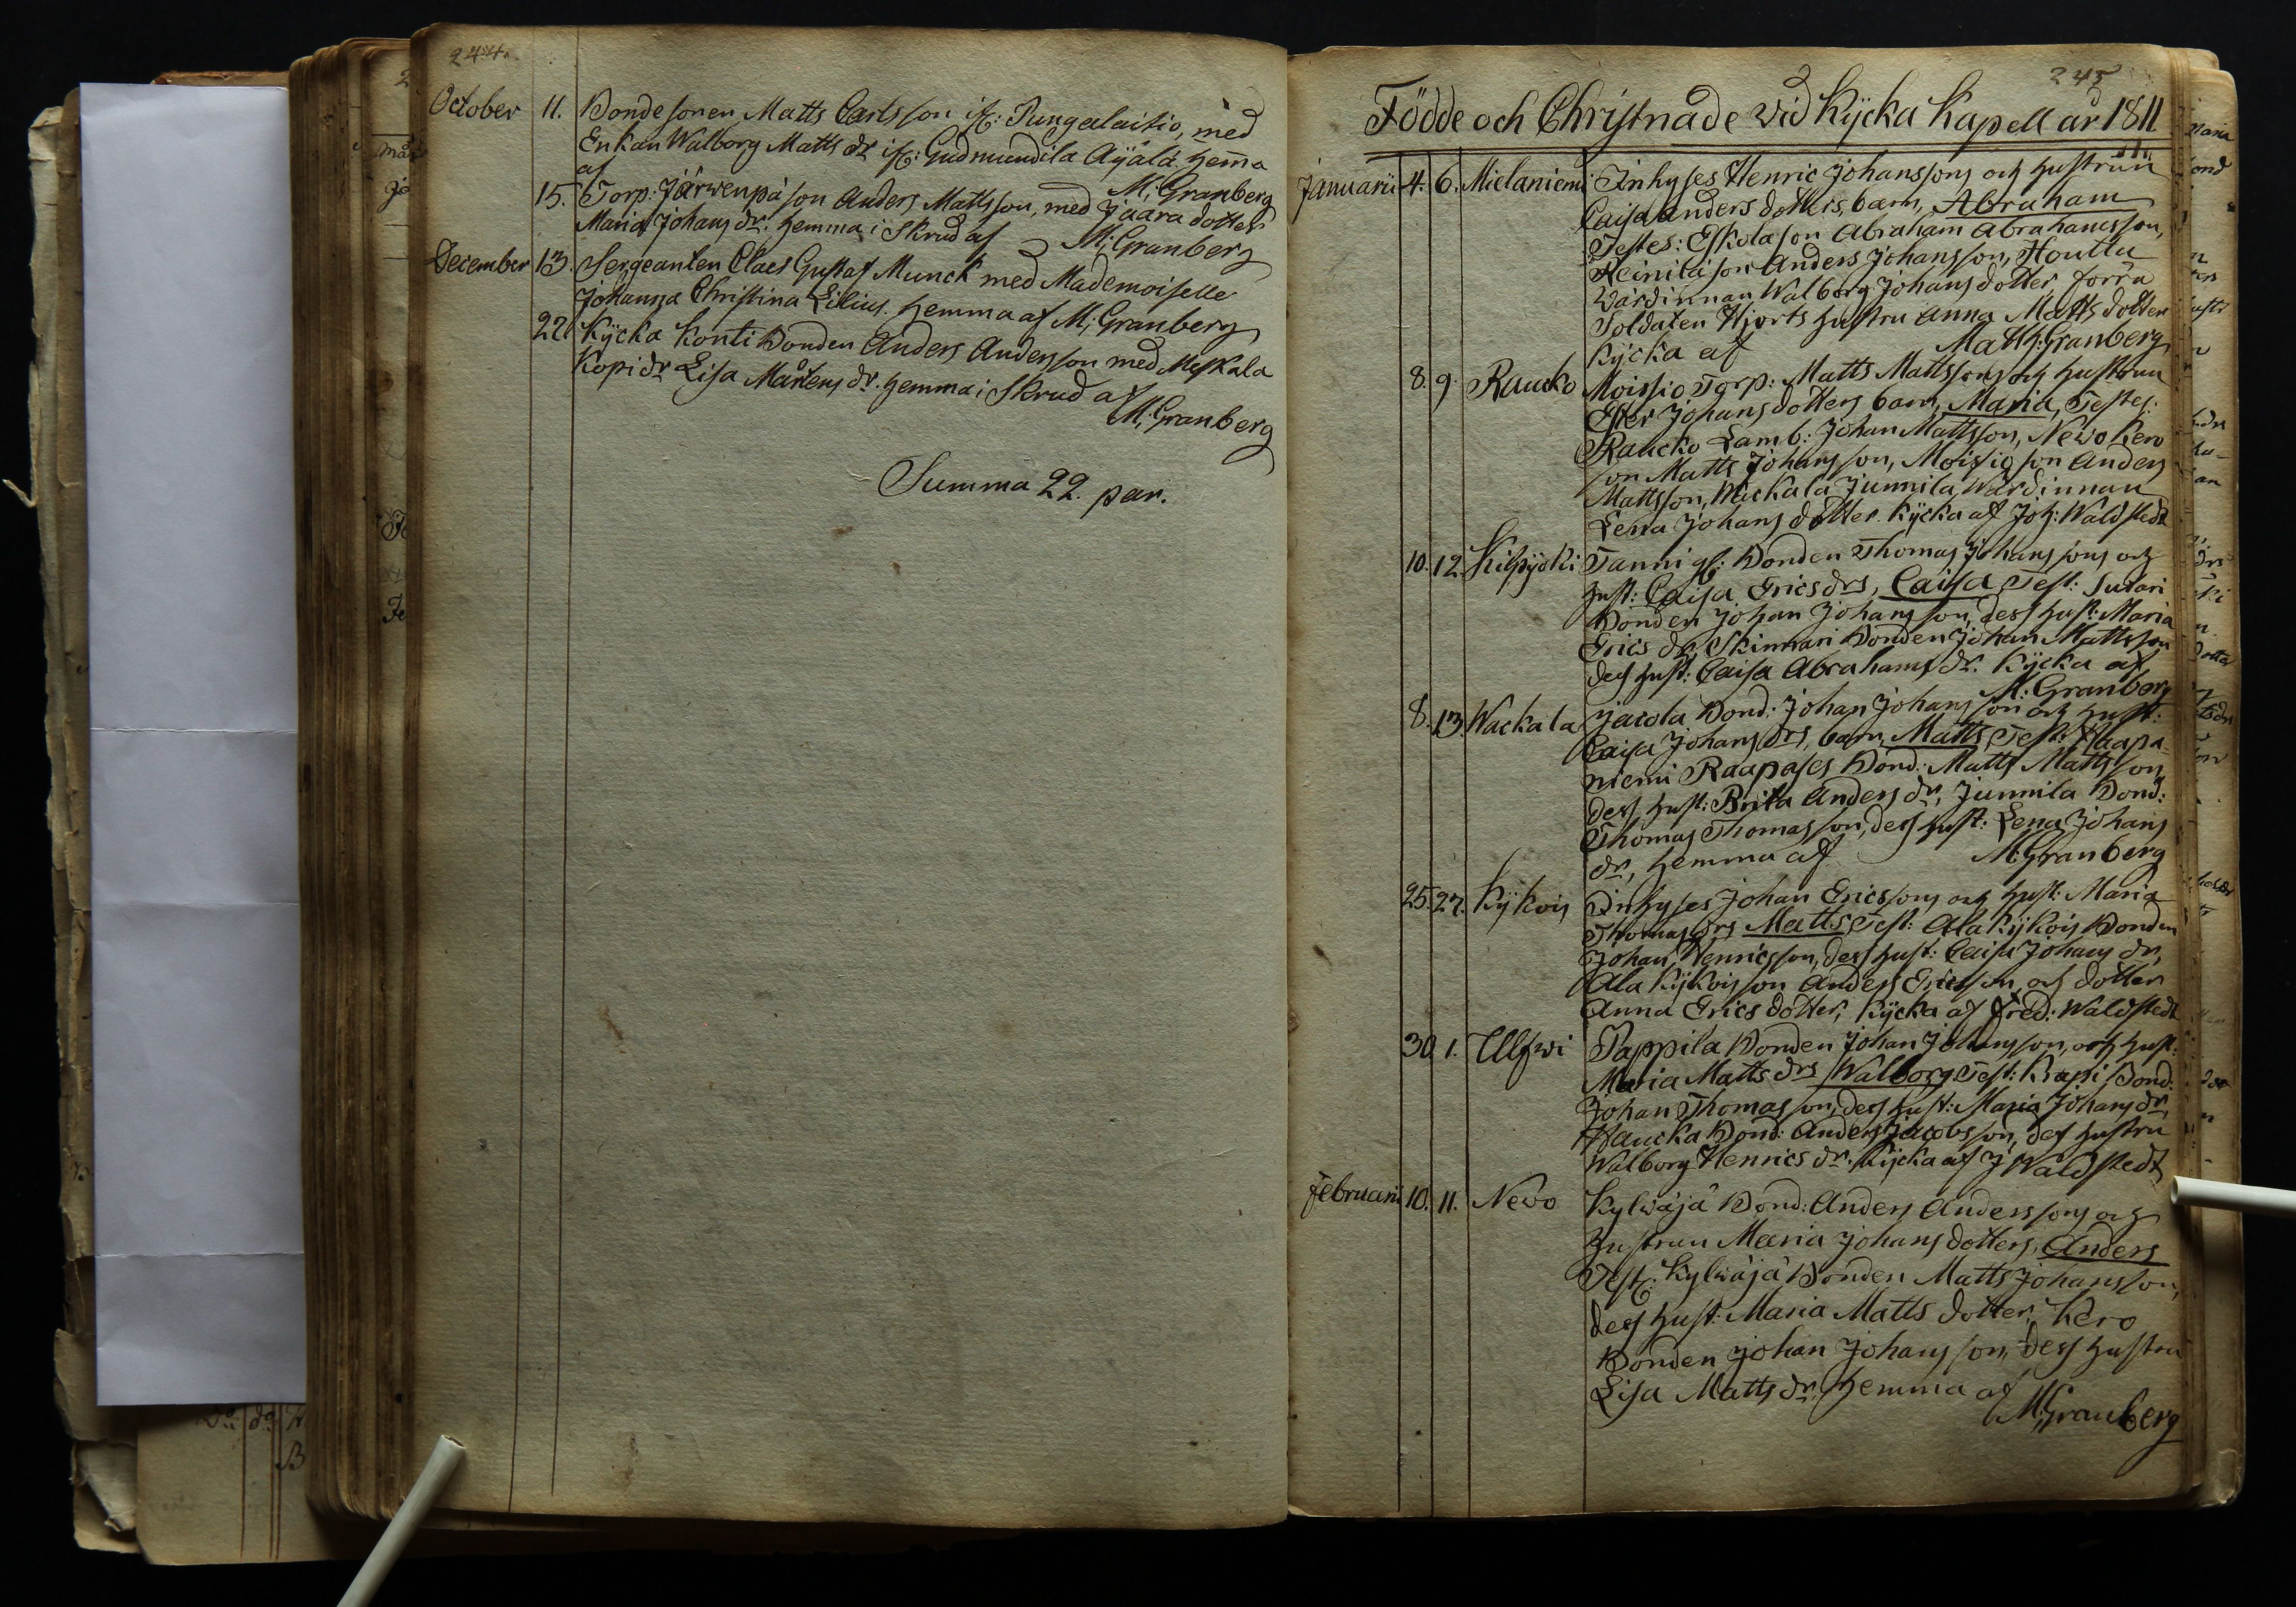 244.
October 11. Bondesonen Matts Carlsson ifr: Pungalaitio, med
Enkan Walborg Matts dr ifr: Gudmundila Äyälä, hemma
af M: Granberg
15. Torp: Järwenpä son Anders Mattsson, med Jaara dotter
Maria Johans dr. hemma i Skrud af M: Granberg
December 13. Sergeanten Claes Gustaf Munck med Mademoiselle
Johanna Christina Lilius. hemma af M: Granberg
27. Kycka Konti Bonden Anders Andersson med Meskala
Kopi dr Lisa Mårtens dr. hemma i Skrud af
M: Granberg
Summa 22. par.
245
Födde och Christnade vid Kycka Kapell år 1811
Januarii 4. 6. Mielaniemi Inhyses Henric Johanssons och hustrun
Caisa Anders dotters, barn, Abraham
Testes: Eskola son Abraham Abrahamsson,
Heinilä son Anders Johansson, Houtta
Wärdinnan Walborg Johans dotter förra
Soldaten Hjorts hustru Anna Matts dotter
Kycka af Math: Granberg
8. 9. Raucko Moissio Torp: Matts Mattssons och hustrun
Ester Johans dotters barn, Maria, Testes:
Raucko Lamb: Johan Mattsson, Newo Kero
son Matts Johansson, Moissio son Anders
Mattsson, Wackala Junnila Wärdinnan
Lena Johans dotter. Kycka af Joh: Waldstedt
10. 12. Kilpijoki Tanni gl: Bonden Thomas Johanssons och
hust: Caisa Erics drs, Caisa Test: Sutari
Bonden Johan Johansson, dess hust: Maria
Erics dr, Skinnari Bonden Johan Mattsson
dess hust: Caisa Abrahams dr. Kycka af
M: Granberg
8. 13. Wackala Jacola Bond: Johan Johansson och hust:
Caisa Johans drs, barn, Matts, Test: Haapa
niemi Raapases Bond: Matts Mattsson,
dess hust: Brita Anders dr, Junnila Bond:
Thomas Thomasson, dess hust: Lena Johans
dr, hemma af M: Granberg
25. 27. Kykois Inhyses Johan Ericssons och hust: Maria
Thomas drs Matts, Test: Ala Kykois Bonden
Johan Henricsson, dess hust: Caisa Johans dr,
Ala Kykois son Anders Ericsson, och dotter
Anna Erics dotter, Kycka af Fred: Waldstedt
30. 1. Ulfwi Pappila Bonden Johan Johansson, och hust:
Maria Matts drs Walborg, Test: Krapi Bond:
Johan Thomasson, dess hust: Maria Johans dr,
Haucka Bond: Anders Jacobsson, dess hustru
Walborg Henrics dr. Kycka af J Waldstedt
Februarii 10. 11. Newo Kylwäjä Bond: Anders Anderssons och
hustrun Maria Johans dotters, Anders
Test: Kylwäjä Bonden Matts Johansson,
dess hust: Maria Matts dotter, Kero
Bonden Johan Johansson, dess hustru
Lisa Matts dr, hemma af
M: Granberg